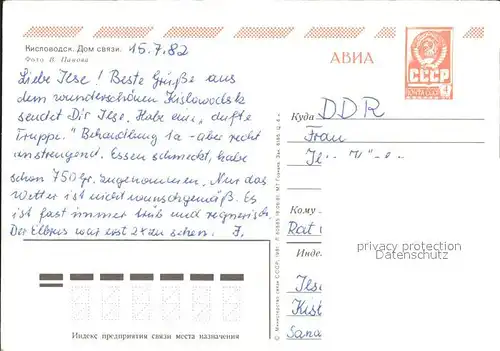 Кисловодск. Дом связи. 15.7.82
Фото В. Панова
Liebe Ilse! Beste Grüße aus
dem wunderschönen Kislowodsk
sendet Dir Ilse. Habe eine „dufte
Truppe." Behandlung 1a - aber recht
anstrengend. Essen schmeckt, habe
schon 750 gr. zugenommen. Nur das
Wetter ist nicht wunschgemäß. Es
ist fast immer trüb und regnerisch.
Der Elbrus war erst 2x zu sehen. I.
Индекс предприятия связи места назначения
© Министерство связи СССР. 1981
АВИА
СССР
4
Куда DDR
Frau
Кому
Rat
privacy protection
Datenschutz
Инде
Ilse
Kisl
Sana